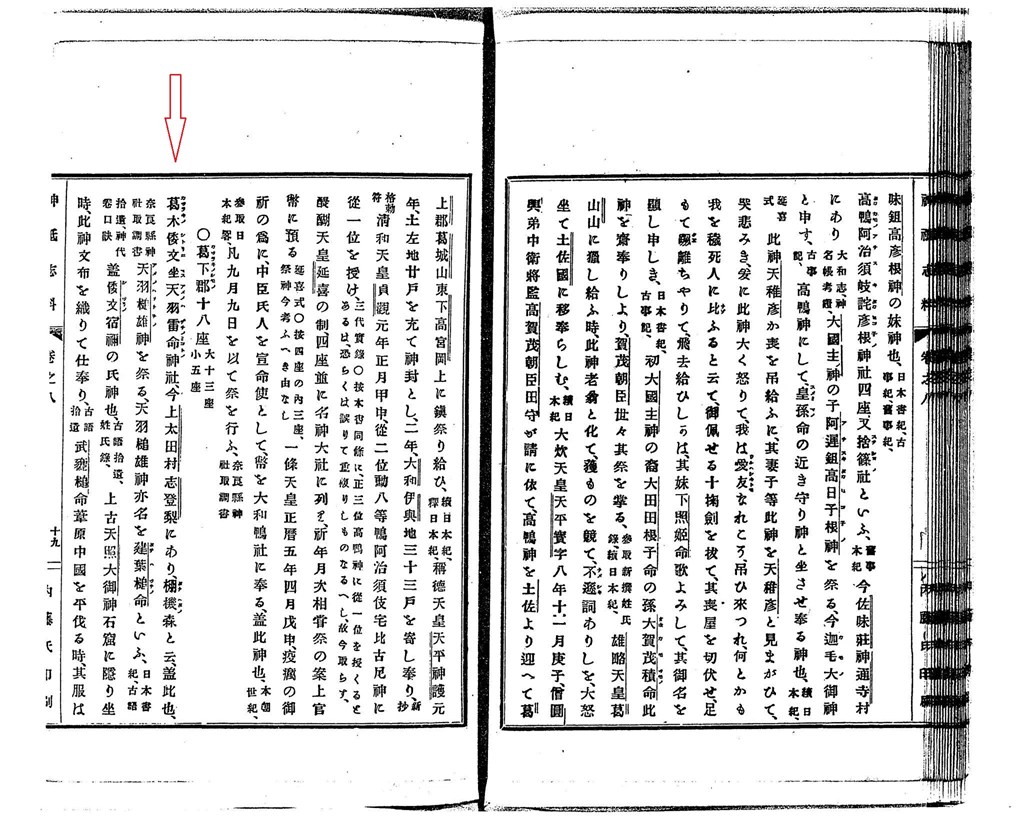 神祇志料 卷之八 内藤氏印刷
味鉏高彦根神の妹神也、日本書紀、古事紀、舊事紀、
高鴨阿治須岐詫彦根神社四座、又捨篠社といふ、舊事本紀 今佐味莊神通寺村
にあり、大和志神名帳考證、大國主神の子阿遲鉏高日子根神を祭る、今迦毛大御神
と申す、古事記、高鴨神にして、皇孫命の近き守り神と坐させ奉る神也、續日本紀、
延喜式 此神天稚彦か喪を吊給ふに、其妻子等此神を天稚彦と見まがひて、
哭悲みき、爰に此神大く怒りて、我は愛友なれころ吊ひ來つれ、何とかも
我を穢死人に比ふると云て、御佩せる十掬劍を拔て、其喪屋を切伏せ、足
もて蹶離ちやりて、飛去給ひしらは、其妹下照姫命歌よみして、其御名を
顯し申しき、日本書紀、古事記、初大國主神の裔大田田根子命の孫大賀茂積命此
神を齋奉りしより賀茂朝臣世々其祭を掌る、參取新撰姓氏錄續日本紀、雄略天皇葛
山山に獵し給ふ時此神老翁と化て、獲ものを競て、不遜詞ありしを、大怒
坐て土佐國に移奉らしむ、續日本紀 大炊天皇天平寶字八年十一月庚子、僧圓
興弟中衛將監高賀茂朝臣田守が請に依て、高鴨神を土佐より迎へて葛
上郡葛城山東下高宮岡上に鎭祭り給ひ、續日本紀、釋日本紀、稱德天皇天平神護元
年土左地廿戸を充て神封とし、二年、大和伊與地三十三戸を寄し奉り、新抄
格勅符 清和天皇貞觀元年正月甲申、從二位勳八等鴨阿治須伎宅比古尼神に
從一位を授け、三代實錄〇按本書同條に、正三位高鴨神に從一位を授くると
あるは、恐らくは誤りて重複りしものなるへし、故今取らす、
醍醐天皇延喜の制四座並に名神大社に列き、祈年月次相嘗祭の案上官
幣に預る、延喜式〇按四座の內三座、祭神今考ふへき由なし 一條天皇正曆五年四月戊申、疫癘の御
祈の爲に、中臣氏人を宣命使として、幣を大和鴨社に奉る、蓋此神也、本朝世紀、
參取日本紀畧、凡九月九日を以て祭を行ふ、奈良縣神社取調書
〇葛下郡十八座 大十三座 小五座
葛木倭文坐天羽雷命神社、今上太田村志登梨にあり棚機森と云、蓋此也、
奈良縣神社取調書 天羽槌雄神を祭る、天羽槌雄神亦名を建葉槌命といふ、日本書紀、古語
拾遺、神代卷口訣 蓋倭文宿禰の氏神也、古語拾遺、姓氏錄、上古天照大御神石窟に隱り坐
時、此神文布を織りて仕奉り、古語拾遺 武甕槌命葦原中國を平伐る時、其服は
神祇志料 卷之八 十九 内藤氏印刷